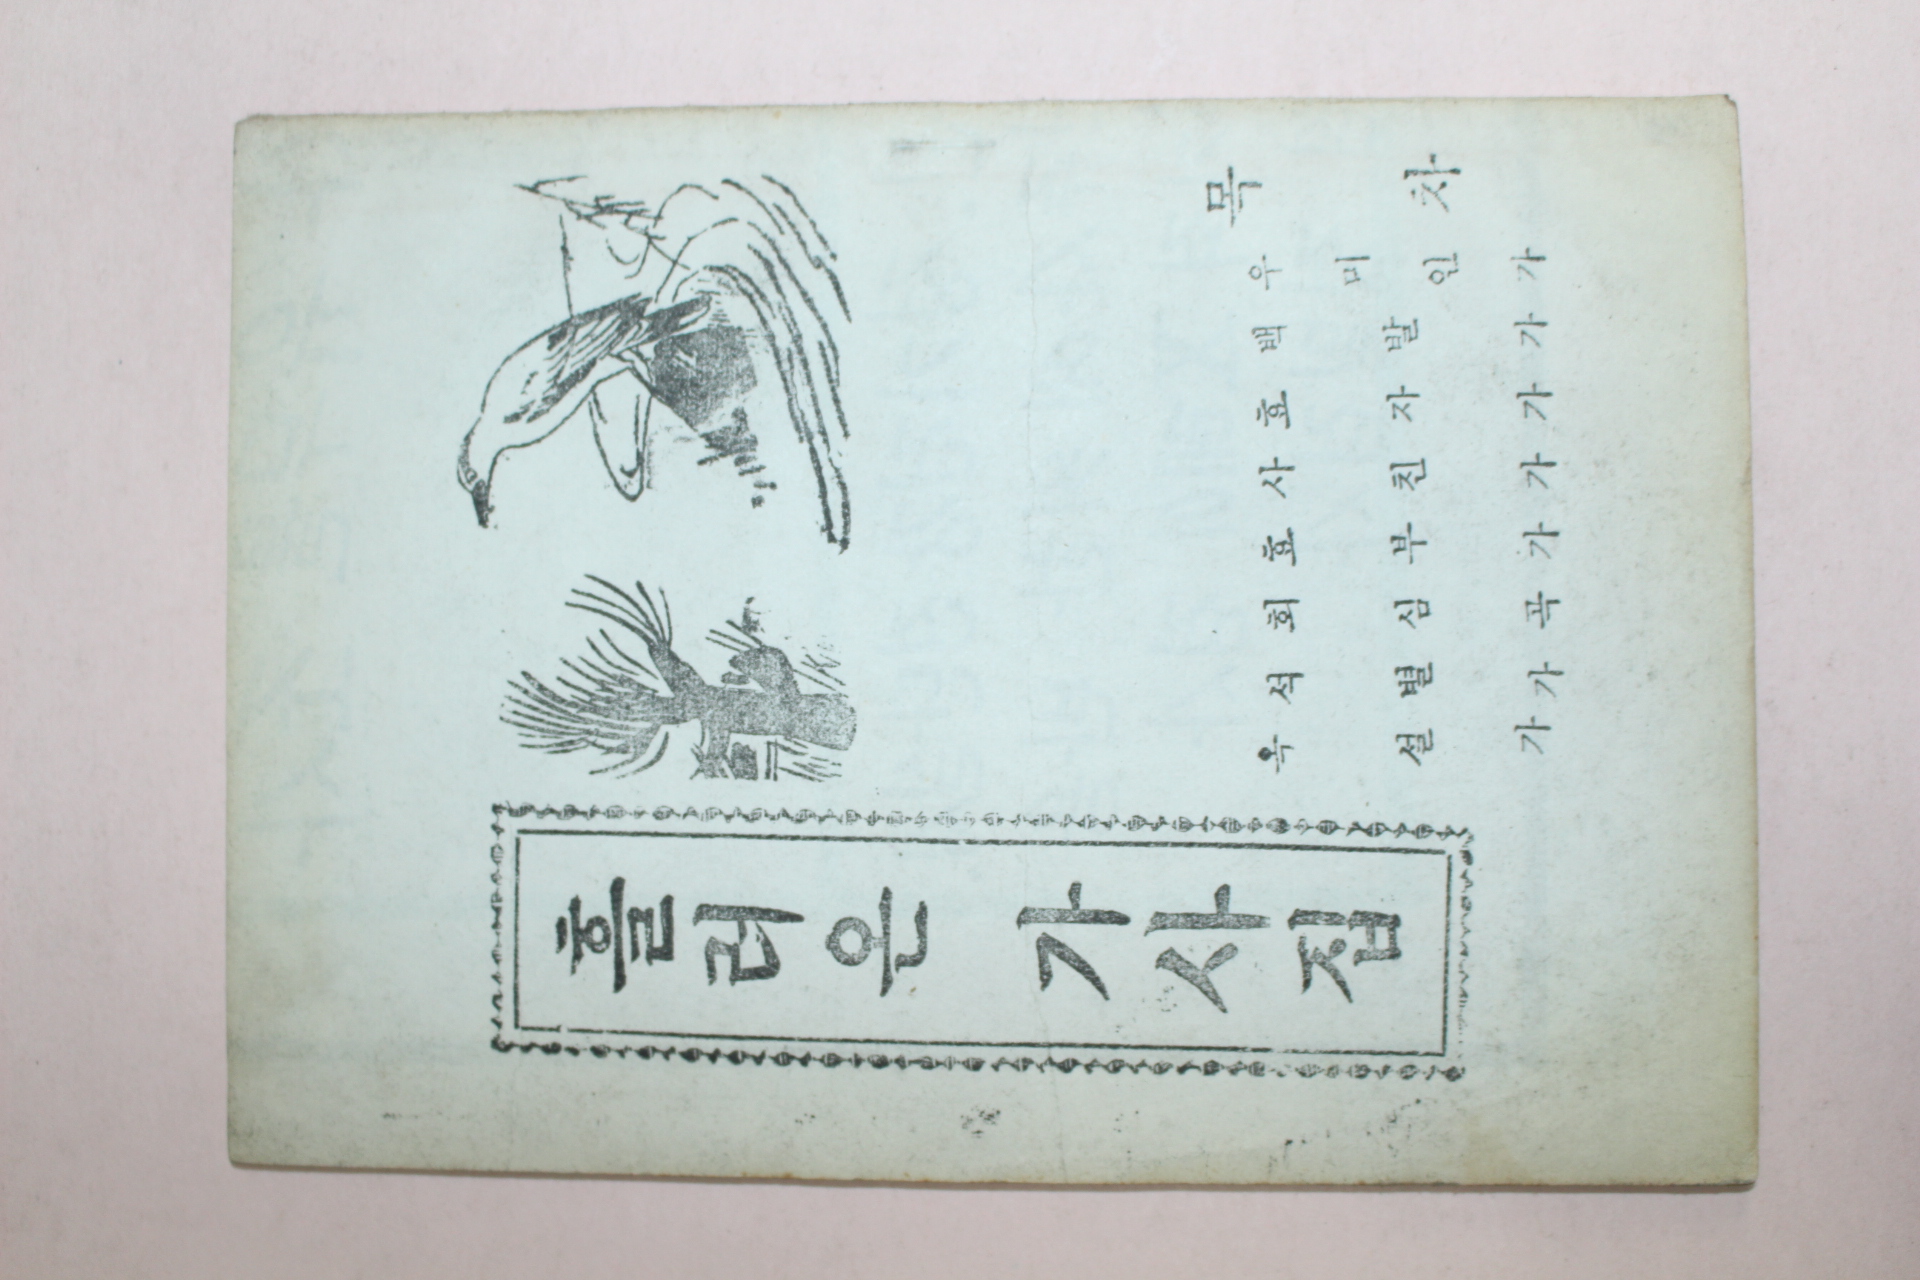 목차
우미인가
백발가
효자가
사친가
효부가
회심곡
석별가
옥설가
흘러온 가사집